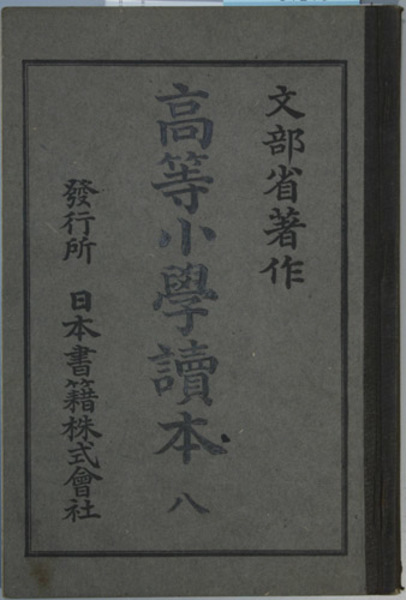 文部省著作
高等小學讀本 八
發行所 日本書籍株式會社